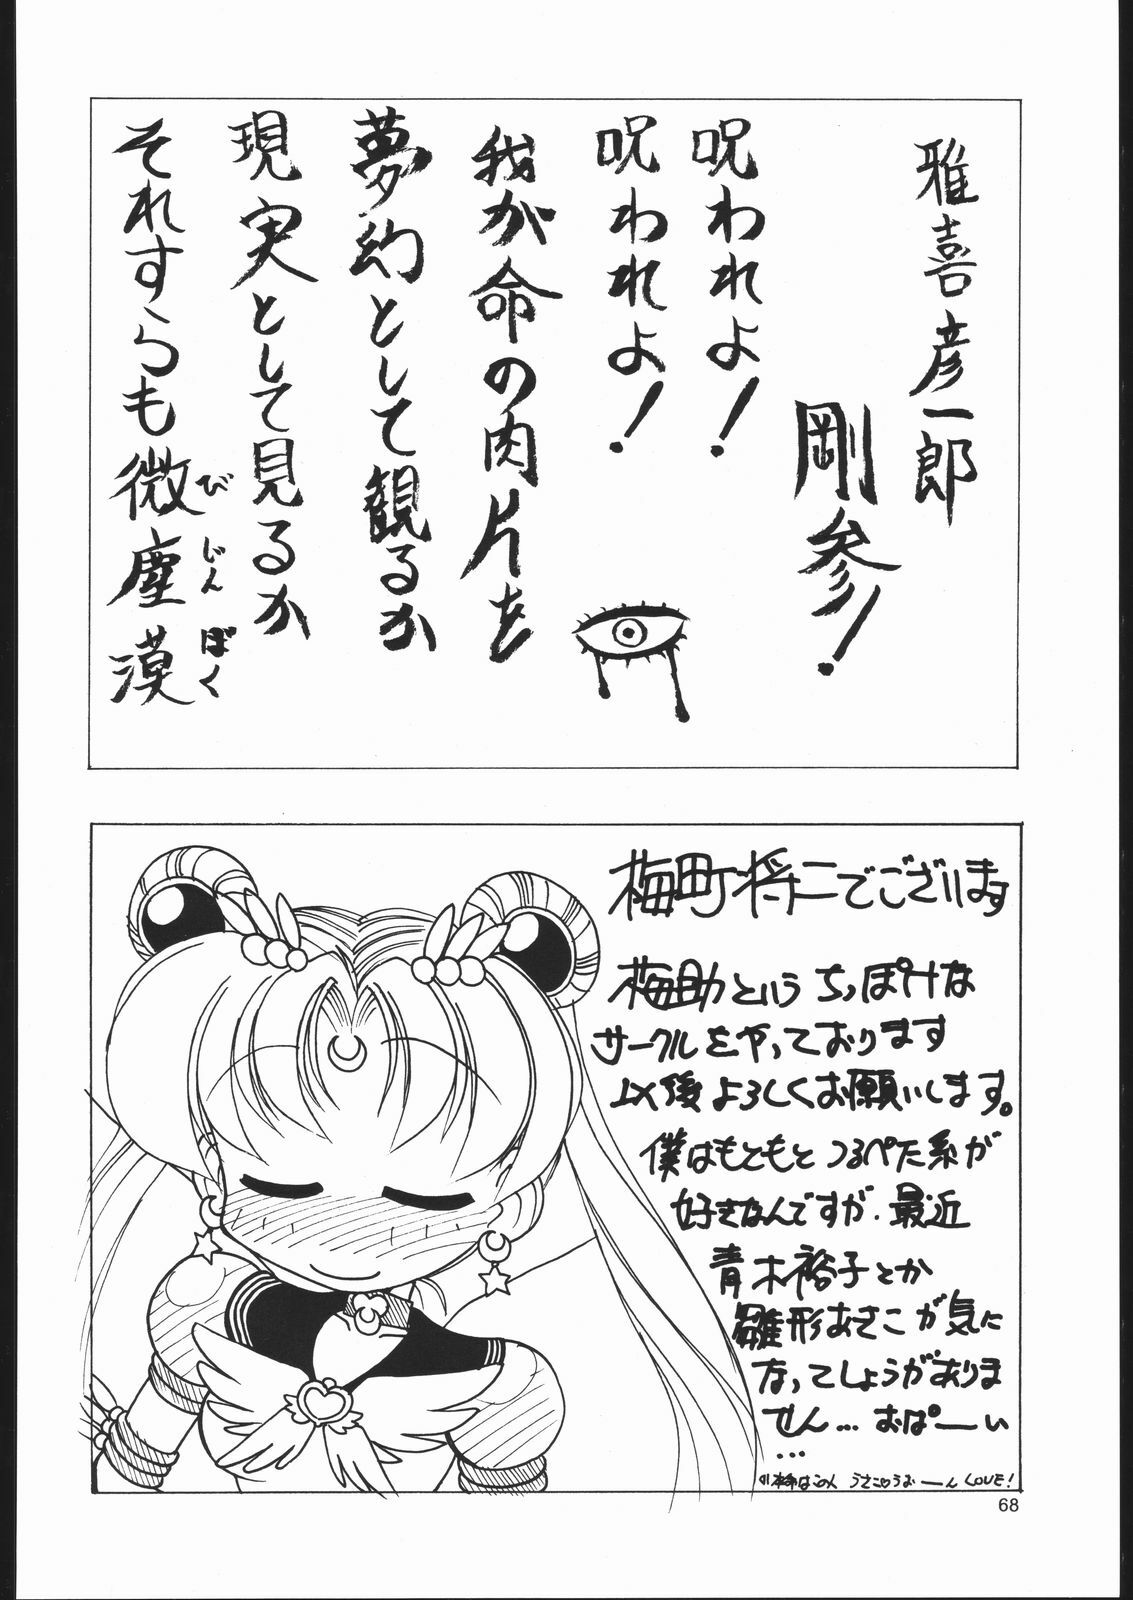 雅喜彦一郎
剛参！
呪われよ！
呪われよ！
我が命の肉片を
夢幻として観るか
現実として見るか
それすらも微塵漠
びじんぼく
梅町将二でございます
梅助というちっぽけな
サークルをやっております
以後よろしくお願いします。
僕はもともとつるぺた系が
好きなんですが、最近
青木裕子とか
雛形あきこが気に
なってしょうがありま
せん…おぱーい
…
うさこ うおーん LOVE!
68